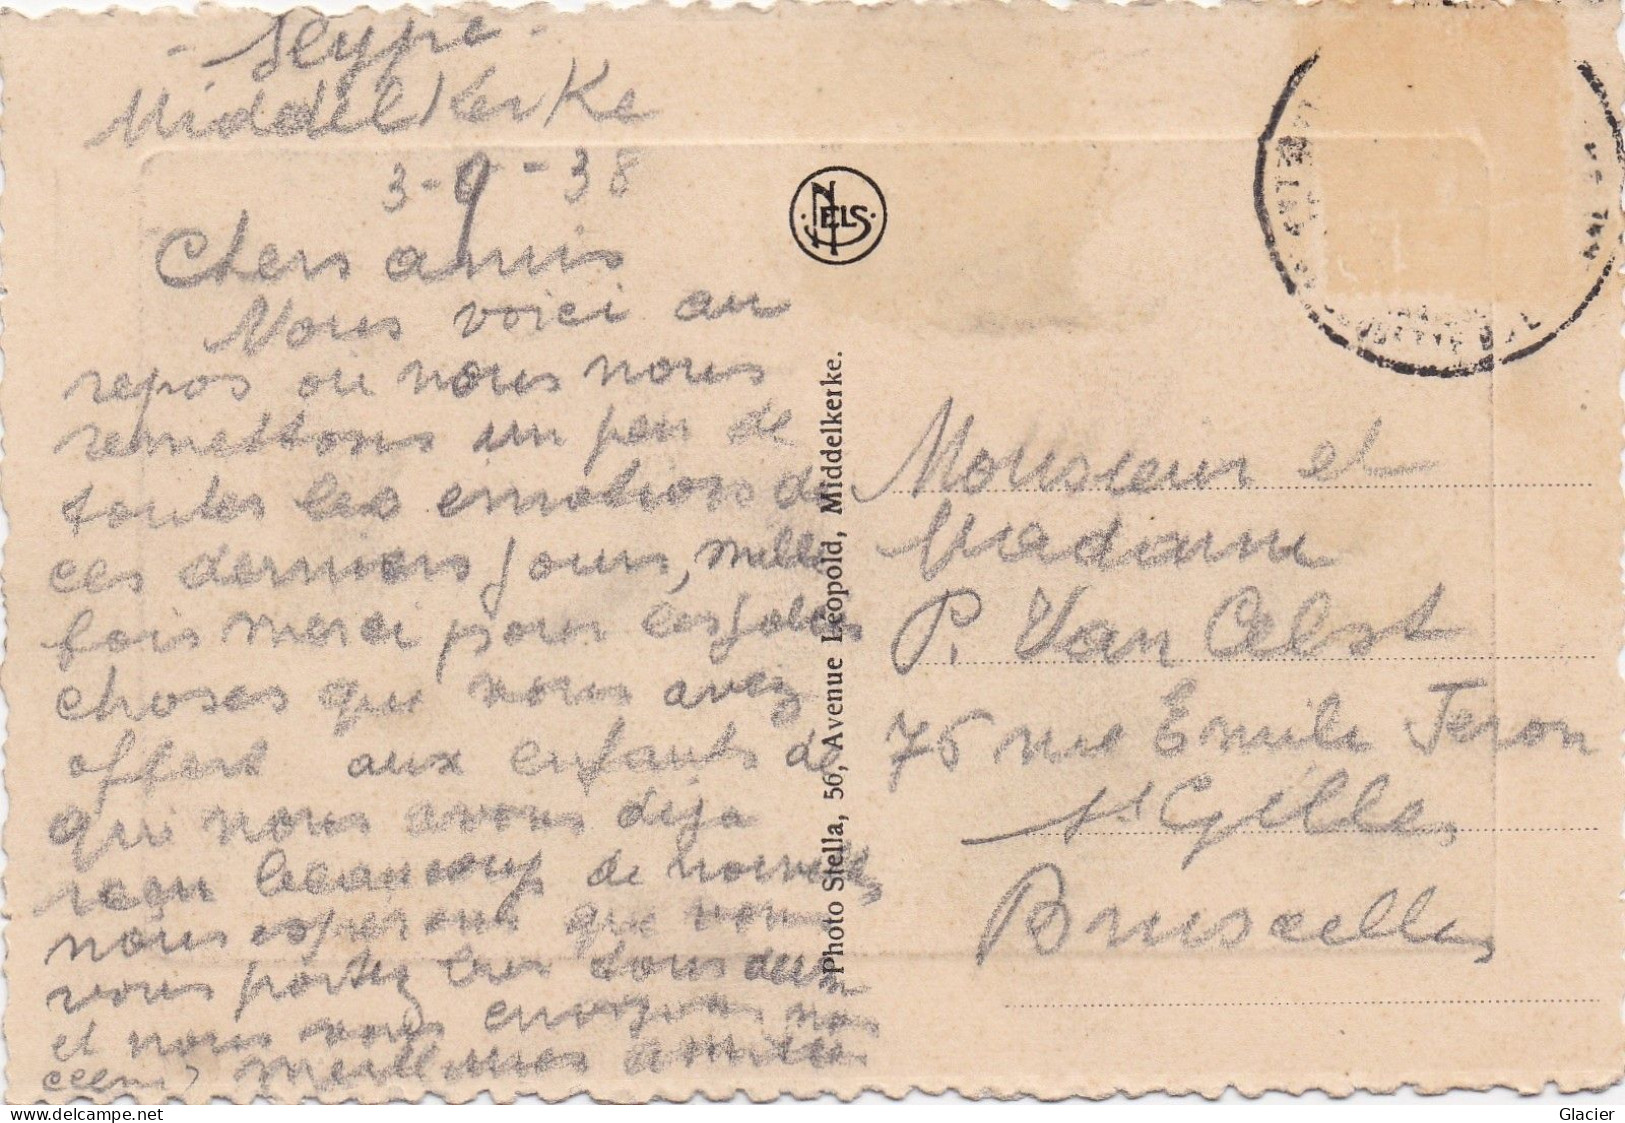 - Seype -
Middelkerke
3-9-38
Chers amis
Nous voici au
repos ou nous nous
remettons un peu de
toutes les emotions de
ces derniers jours, mille
fois merci pour les jolies
choses que vous avez
offert aux enfants de
qui nous avons deja
recu beaucoup de nouvelles
nous esperons que vous
vous portez tres tous deux
et nous vous envoyons nos
meilleures amitiés
NELS
Photo Stella, 56, Avenue Léopold, Middelkerke.
Monsieur et
Madame
P. Van Celst
75 rue Emile Feron
St Gilles
Bruxelles
Glacier